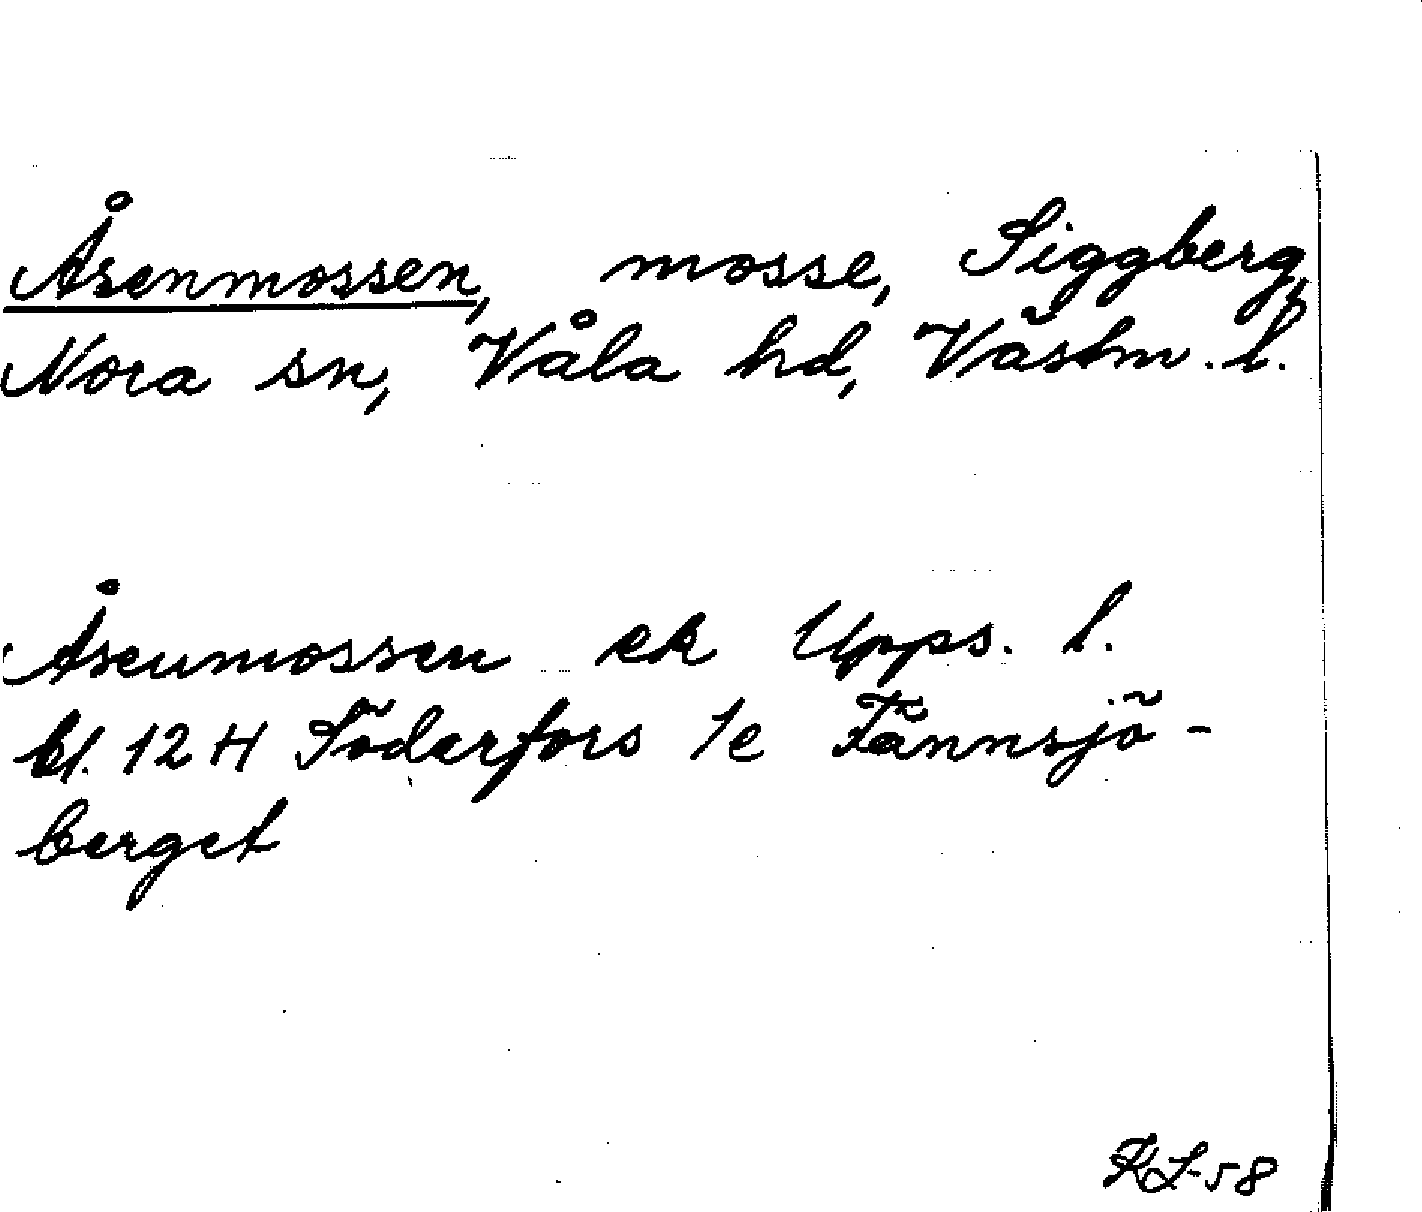 Åsenmossen, mosse, Siggberg,
Nora sn, Våla hd, Västm. l.
Åsenmossen ek Upps. l.
bl. 12 H Söderfors 1e Tännsjö-
berget
KL-58